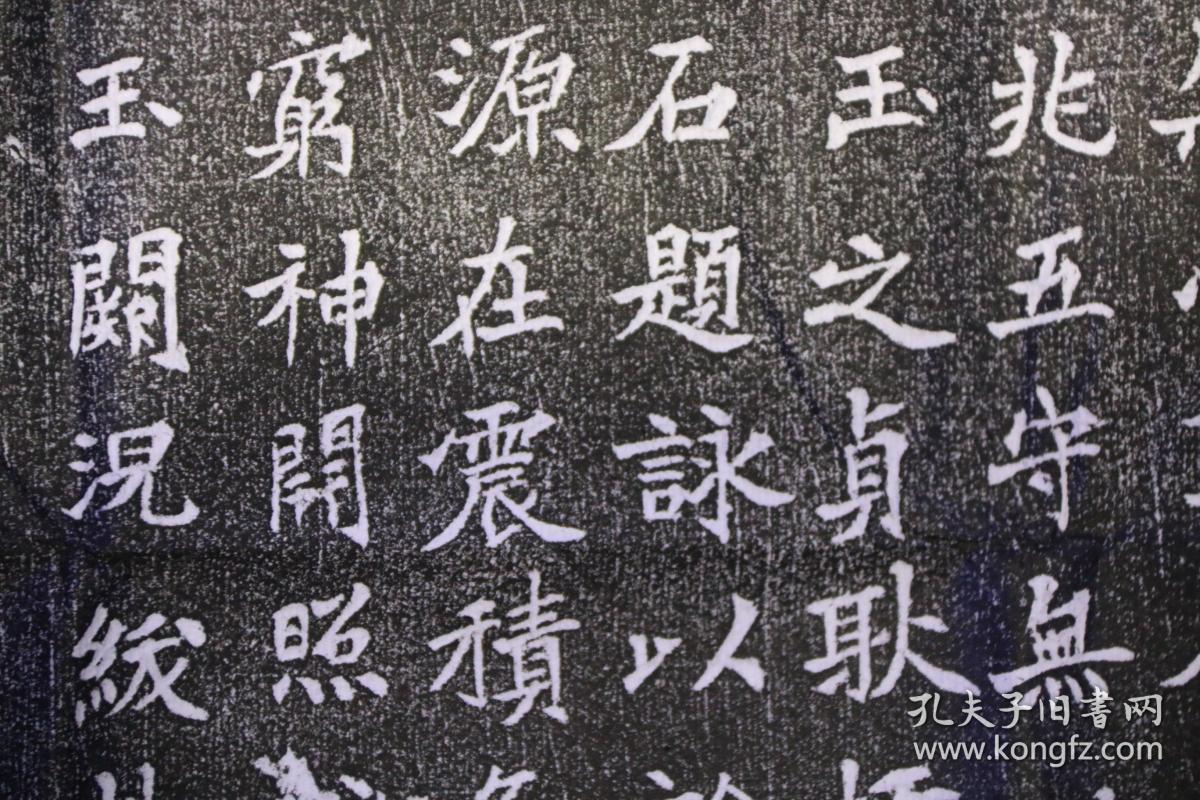 兆五守無
玉之貞耿
石題詠以
源在震積
窮神開照
玉闕況綏
孔夫子旧書网
www.kongfz.com